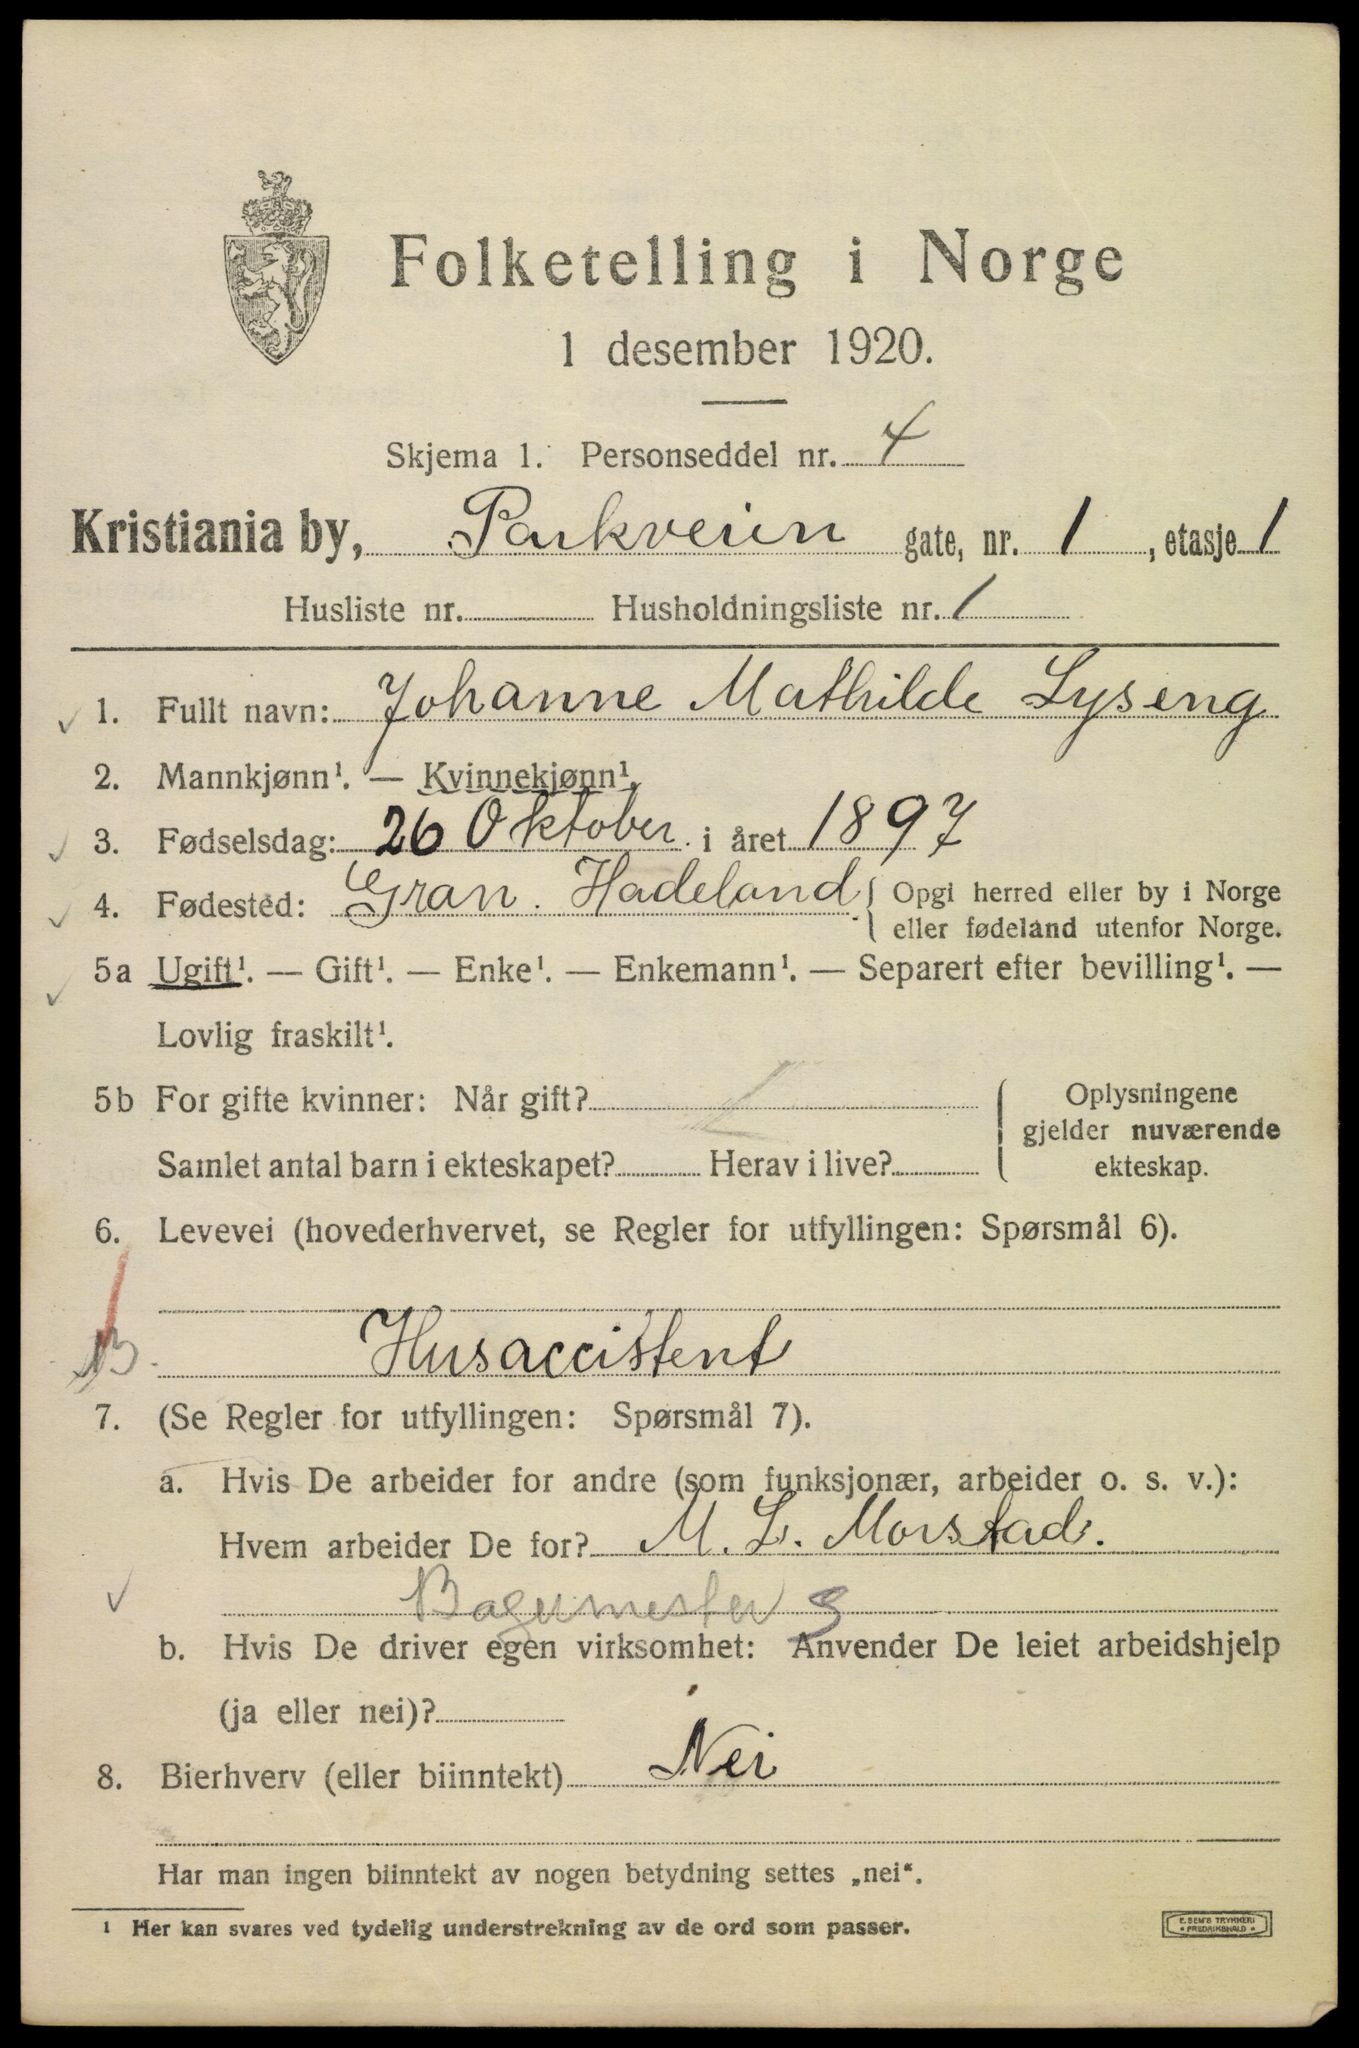 Folketelling i Norge
1 desember 1920.
Skjema 1. Personseddel nr. 4
Kristiania by, Parkveien gate, nr. 1, etasje 1
Husliste nr. Husholdningsliste nr. 1
1. Fullt navn: Johanne Mathilde Lyseng
2. Mannkjønn¹. — Kvinnekjønn¹.
3. Fødselsdag: 26 Oktober i året 1897
4. Fødested: Gran. Hadeland { Opgi herred eller by i Norge
eller fødeland utenfor Norge.
5a Ugift¹. — Gift¹. — Enke¹. — Enkemann¹. — Separert efter bevilling¹. —
Lovlig fraskilt¹.
5b For gifte kvinner: Når gift? Oplysningene
gjelder nuværende
Samlet antal barn i ekteskapet? Herav i live? ekteskap.
6. Levevei (hovederhvervet, se Regler for utfyllingen: Spørsmål 6).
Husaccistent
7. (Se Regler for utfyllingen: Spørsmål 7).
a. Hvis De arbeider for andre (som funksjonær, arbeider o. s. v.):
Hvem arbeider De for? M. L. Morstad.
Bagermester
b. Hvis De driver egen virksomhet: Anvender De leiet arbeidshjelp
(ja eller nei)?
8. Bierhverv (eller biinntekt) Nei
Har man ingen biinntekt av nogen betydning settes „nei“.
¹ Her kan svares ved tydelig understrekning av de ord som passer.
E. SEM'S TRYKKERI
FREDRIKSHALD